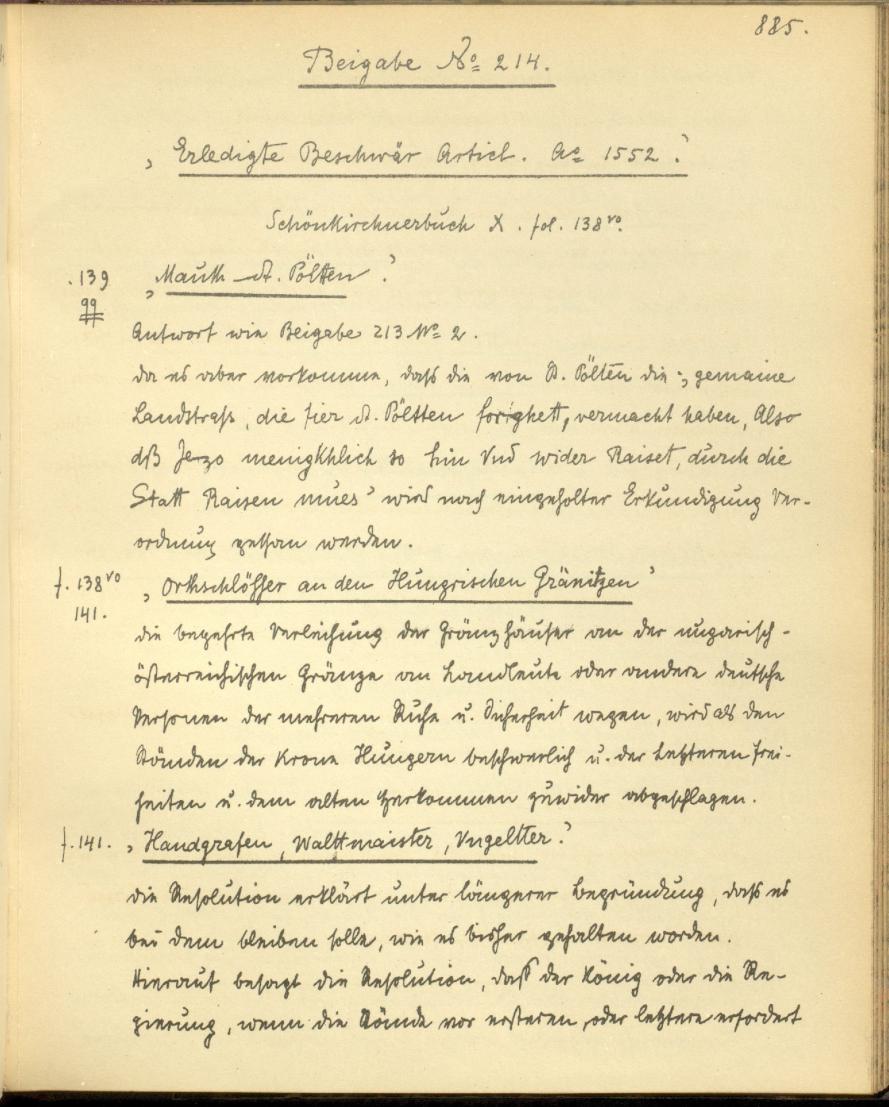 885.
Beigabe No 214.
„Erledigte Beschwär Articl. Ao 1552.“
Schönkirchnerbuch X. fol. 138vo.
.139 „Mauth St. Pöltten.“
99
Antwort wie Beigabe 213 No 2.
da es aber vorkomme, daß die von St. Pölten die „gemaine
Landtstraß, die hier St. Pöltten forighett, vermacht haben, Also
dß Jezo menigkhlich so hin Vnd wider Raiset, durch die
Statt Raisen mues“ wird nach eingeholter Erkundigung Ver-
ordnung gethan werden.
f. 138vo „Orthschlösser an den Hungrischen Gränitzen“
141.
die begehrte Verleihung der Gränzhäuser an der ungarisch-
österreichischen Gränze an Landleute oder andere deutsche
Personen der mehreren Ruhe u. Sicherheit wegen, wird als den
Ständen der Krone Hungern beschwerlich u. der letzteren Frei-
heiten u. dem alten Herkommen zuwider abgeschlagen.
f. 141. „Handgrafen, Waltmaister, Vngeltter.“
die Resolution erklärt unter längerer Begründung, daß es
bei dem bleiben solle, wie es bisher gehalten worden.
Hierauf besagt die Resolution, daß der König oder die Re-
gierung, wenn die Stände vor ersteren oder letztere erfordert